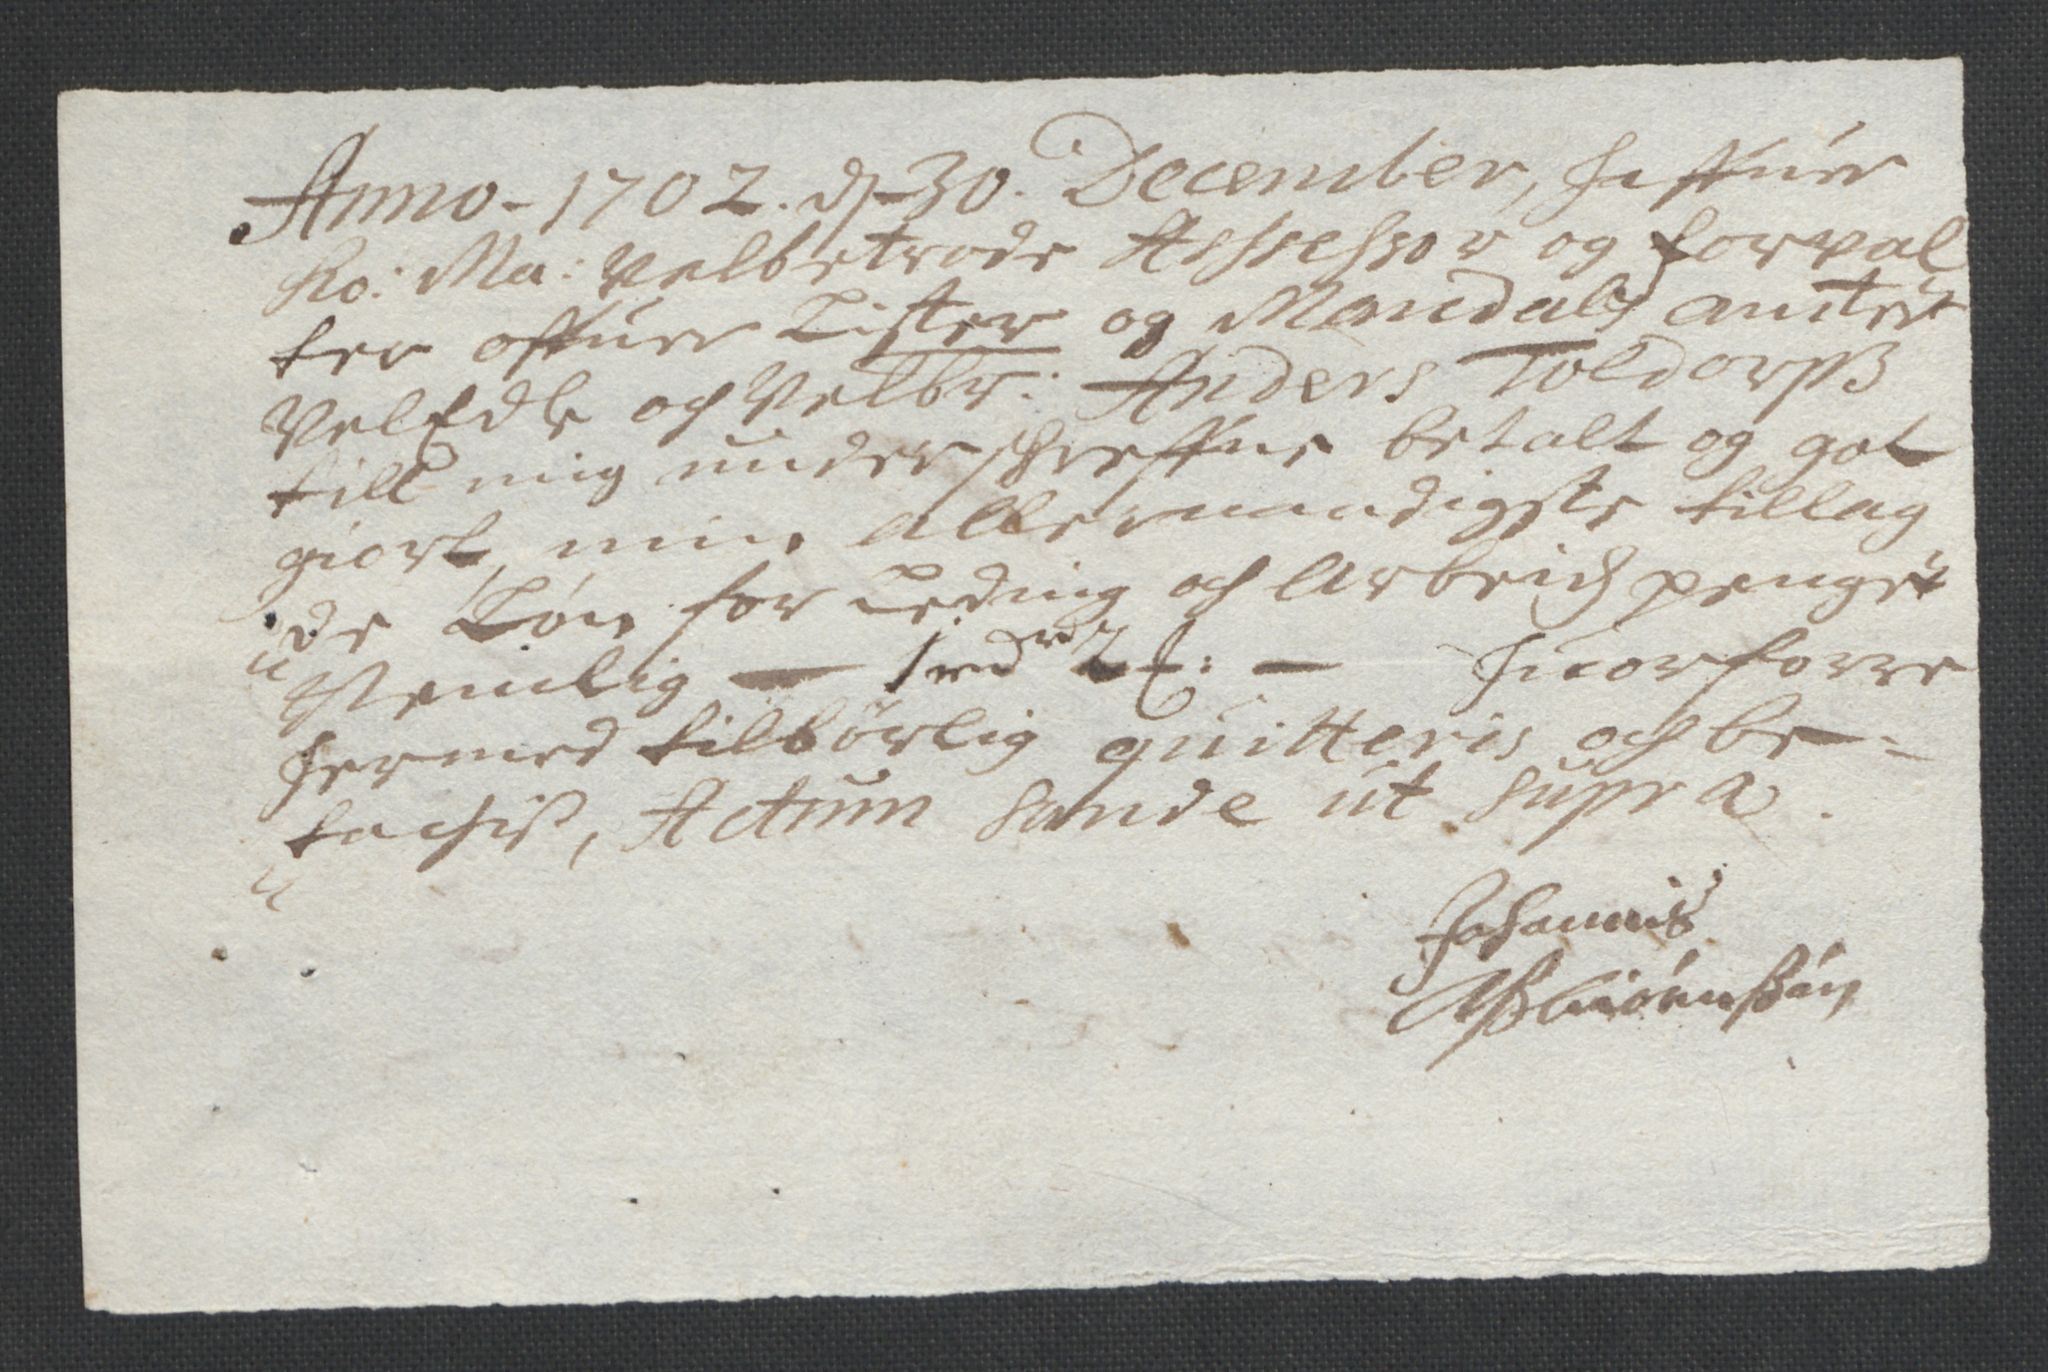 Anno - 1702. d. 30. December, haffuer
Ko: Ma: Velbetrode Assessor og forval
ter offuer Lister og Mandals ambter
VelEdle och Velbr: Anders Toldorph
till mig underschreffne betalt og got
giort, min Allernaadigste tillag
de Løn for Leding och Arbeids penger
Nemlig — 1 rdr 2 — huorforre
hermed tilbørlig quitteris och be-
tachis, Actum Sande ut supra.
Johannis
Asbiørnsøn